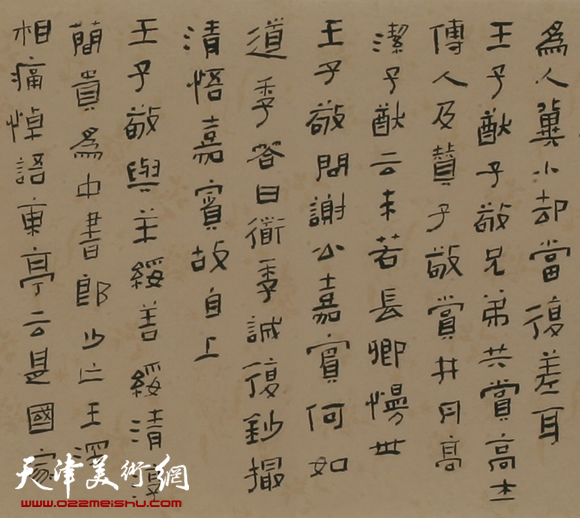 為人冀小却當復差耳
王子猷子敬兄弟共賞高士
傳人及贊子敬賞井丹高
潔子猷云未若長卿慢世
王子敬問謝公嘉賓何如
道季答曰衜季誠復鈔撮
清悟嘉賓故自上
王子敬與羊綏善綏清淳
簡貴為中書郎少亡王深
相痛悼語東亭云是國家
天津美術網
www.022meishu.com